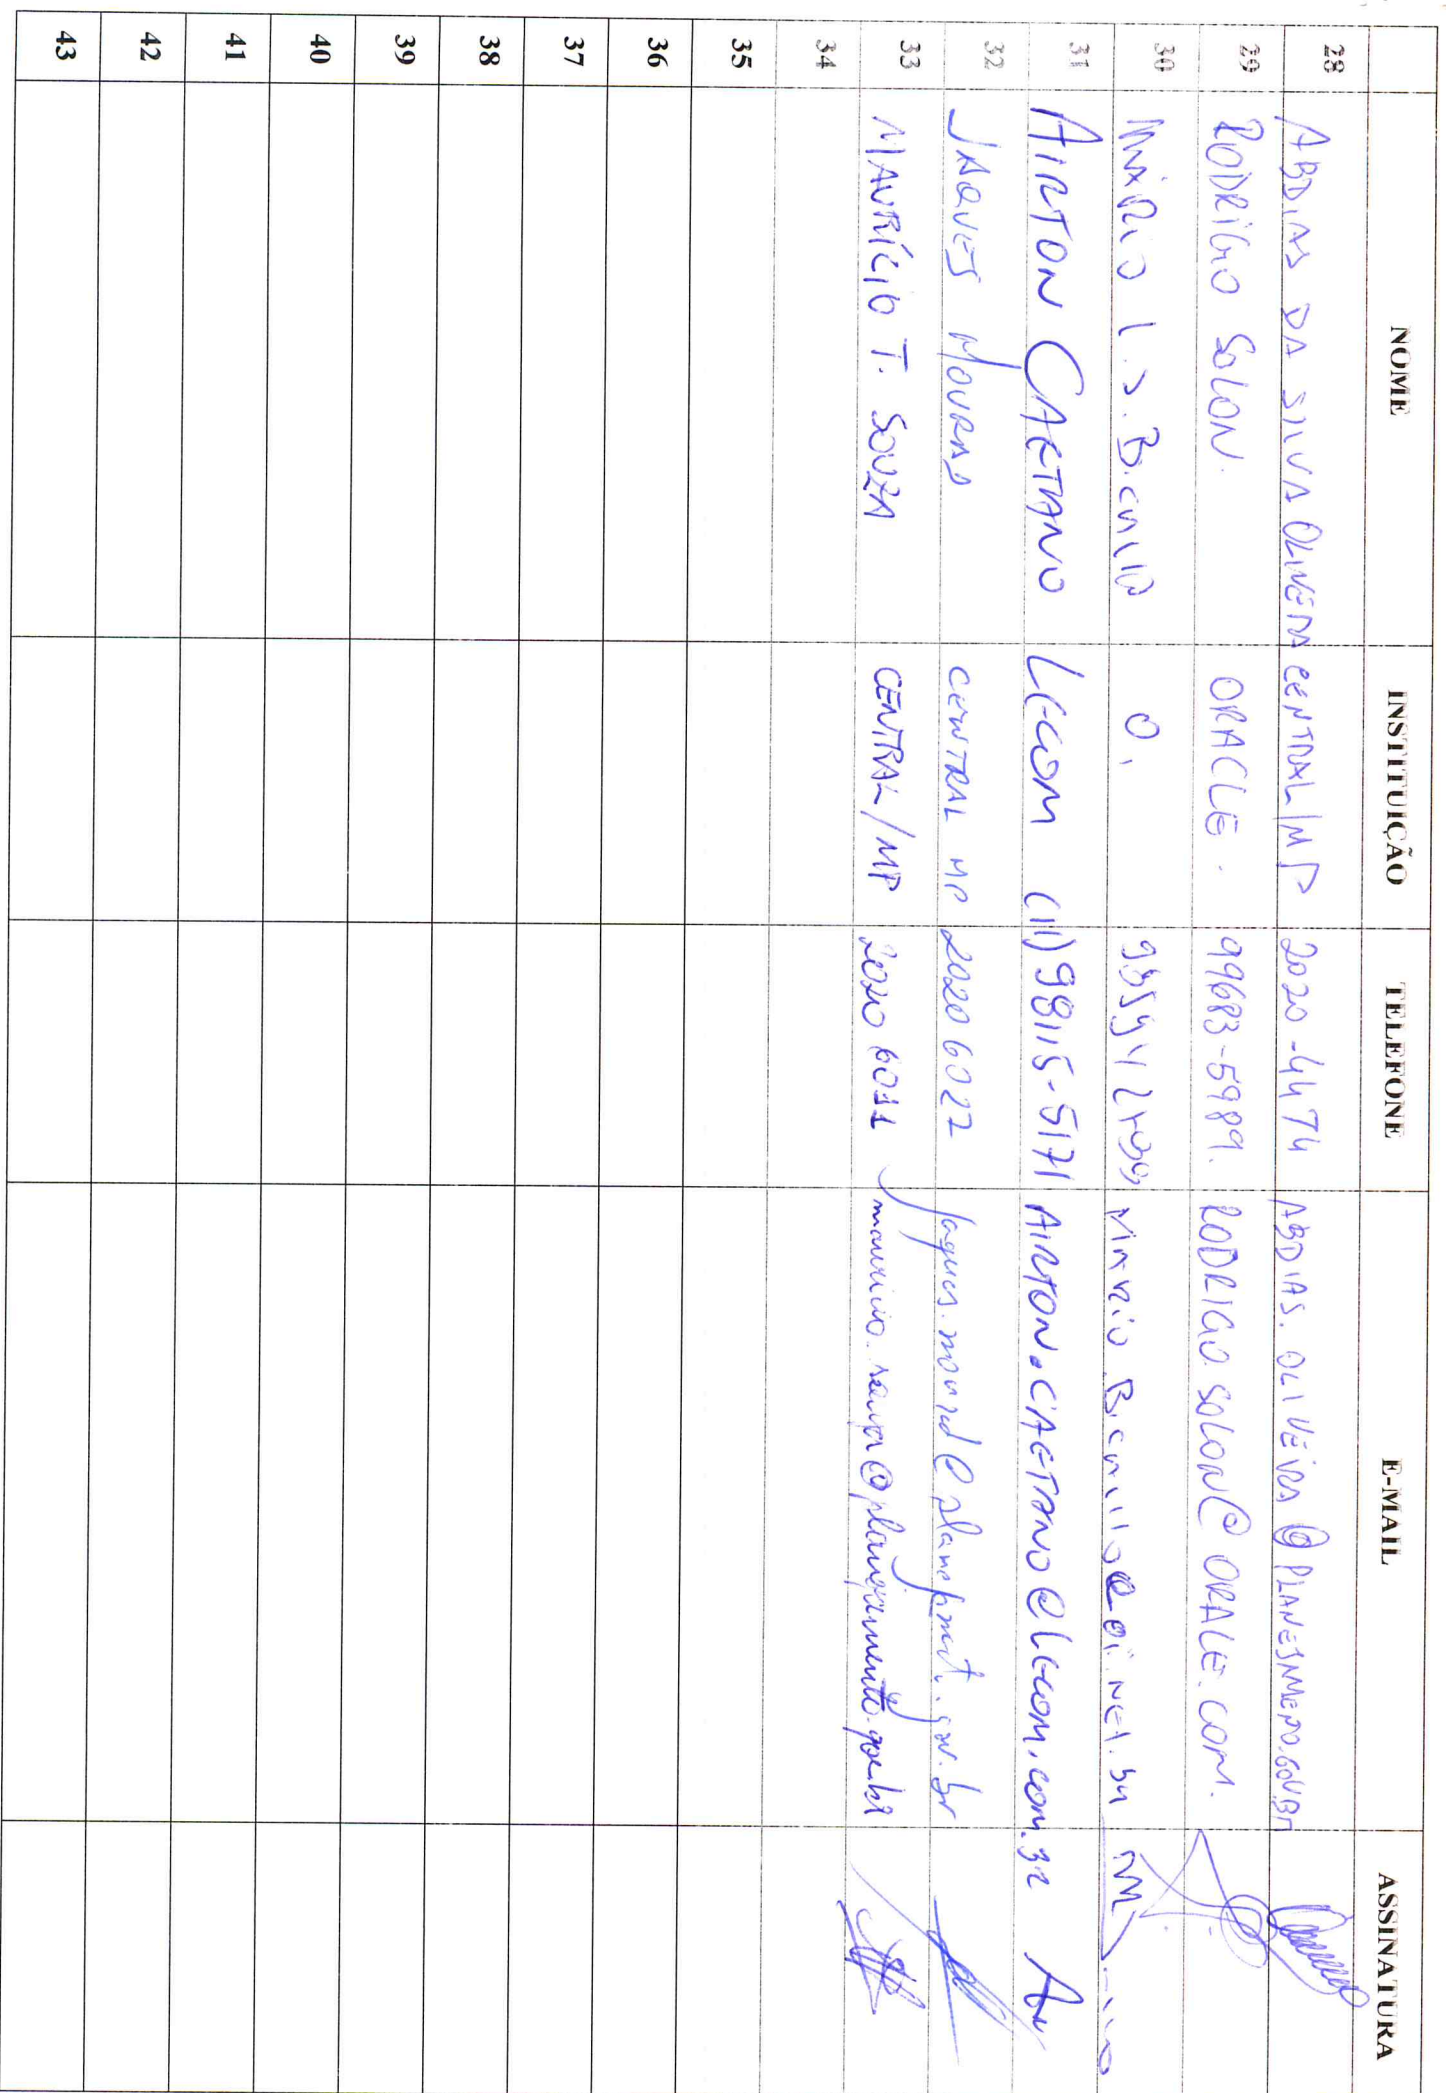 NOME INSTITUIÇÃO TELEFONE E-MAIL ASSINATURA
28 ABDIAS DA SILVA OLIVEIRA CENTRAL/MP 2020-4474 ABDIAS.OLIVEIRA@PLANEJAMENTO.GOV.BR
29 RODRIGO SOLON. ORACLE. 99683-5989. RODRIGO.SOLON@ORALE.COM.
30 MARCIO Oi
31 AIRTON CAETANO LECOM (11)98115-5171 AIRTON.CAETANO@LECOM.COM.BR
32 JAQUES MOURAD CENTRAL MP 2020 6022 jaques.mourad@planejamento.gov.br
33 MAURÍCIO T. SOUZA CENTRAL/MP 2020 6011 mauricio.souza@planejamento.gov.br
34
35
36
37
38
39
40
41
42
43